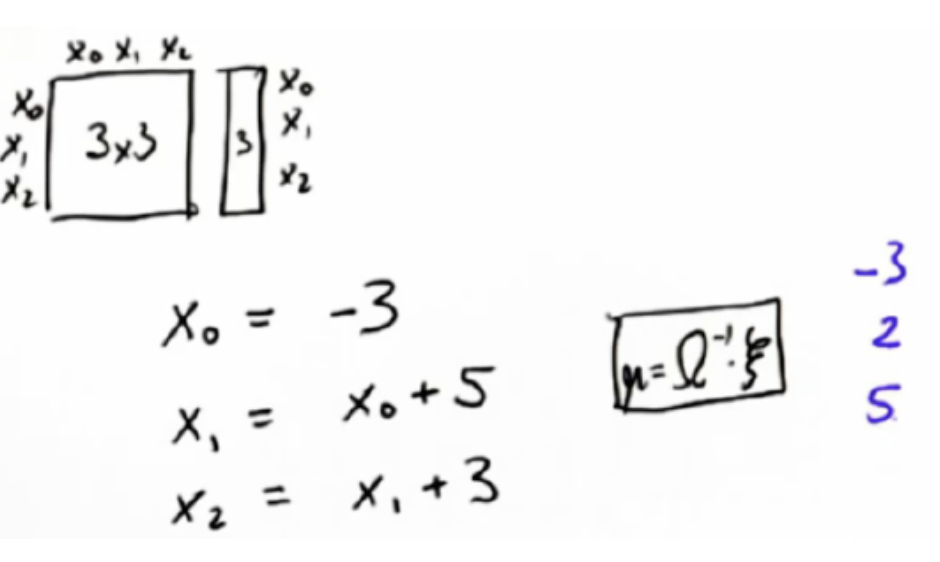 x₀ x₁ x₂
x₀
x₁
x₂
3x3
3
x₀
x₁
x₂
x₀ = -3
x₁ = x₀ + 5
x₂ = x₁ + 3
μ = Ω⁻¹·ξ
-3
2
5